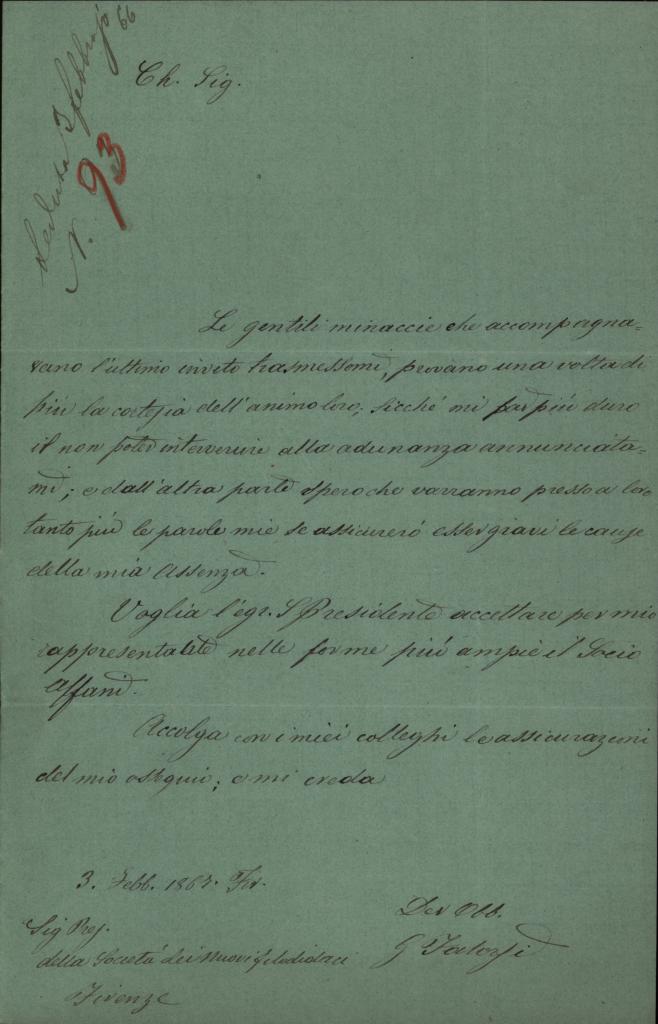 Seduta 3 febbrajo 66
N. 93
Ch. Sig.
Le gentili minaccie che accompagna=
vano l'ultimo invito trasmessomi, provano una volta di
più la cortesia dell'animo loro; sicché mi par più duro
il non poter intervenire alla adunanza annunciata-
mi; e dall'altra parte spero che varranno presso a loro
tanto più le parole mie se assicureró esser gravi le cause
della mia assenza.
Voglia l'egr. S Presidente accettare per mio
rappresentante nelle forme più ampie il Socio
Affani.
Accolga con i miei colleghi le assicurazioni
del mio ossequio; e mi creda
3. Febb. 186 Fir.
Dev Obb.
G
Sig Pres.
della Società dei Nuovi Filodidaci
Firenze